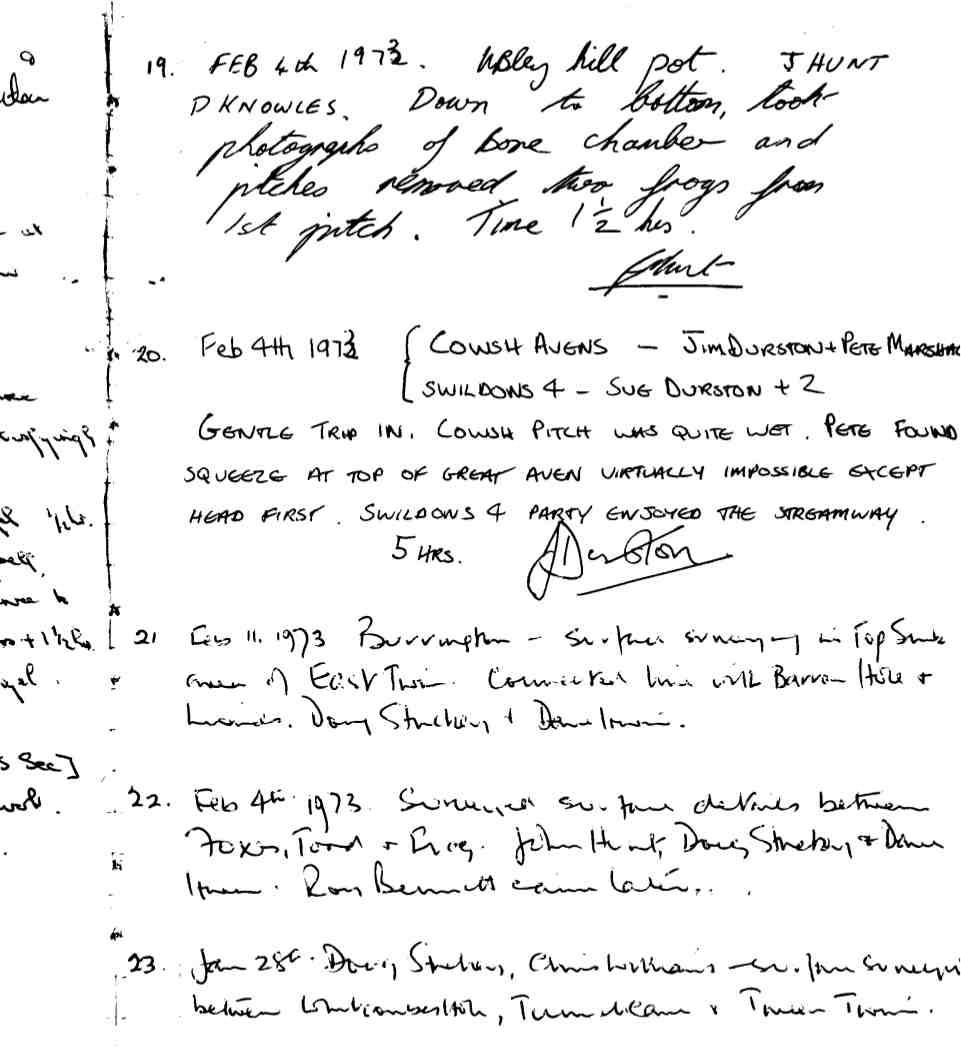 19. FEB 4th 1973. Ubley hill pot. J HUNT
D KNOWLES. Down to bottom, took
photographs of bone chamber and
pitches removed two frogs from
1st pitch. Time 1 1/2 hrs.
JHunt
20. Feb 4th 1973 { COWSH AVENS – JIM DURSTON + PETE MARSHAL
SWILDONS 4 – SUE DURSTON + 2
GENTLE TRIP IN. COWSH PITCH WAS QUITE WET. PETE FOUND
SQUEEZE AT TOP OF GREAT AVEN VIRTUALLY IMPOSSIBLE EXCEPT
HEAD FIRST. SWILDONS 4 PARTY ENJOYED THE STREAMWAY.
5 HRS. JDurston
21 Feb 11. 1973 Burrington – surface surveying in Top Sink
area of East Twin. Connected line with Barren Hole &
Doug Stuckey & Dave Irwin.
22. Feb 4th 1973. Surveyed surface details between
Foxes, Toad & Frog. John Hunt, Doug Stuckey & Dave
Irwin. Roy Bennett came later..
23. Jan 28th. Doug Stuckey, Chris Williams – surface surveyi
between Whitcombes Hole, &
1/2 hr.
+ 1 1/2 hrs.
s Sec]